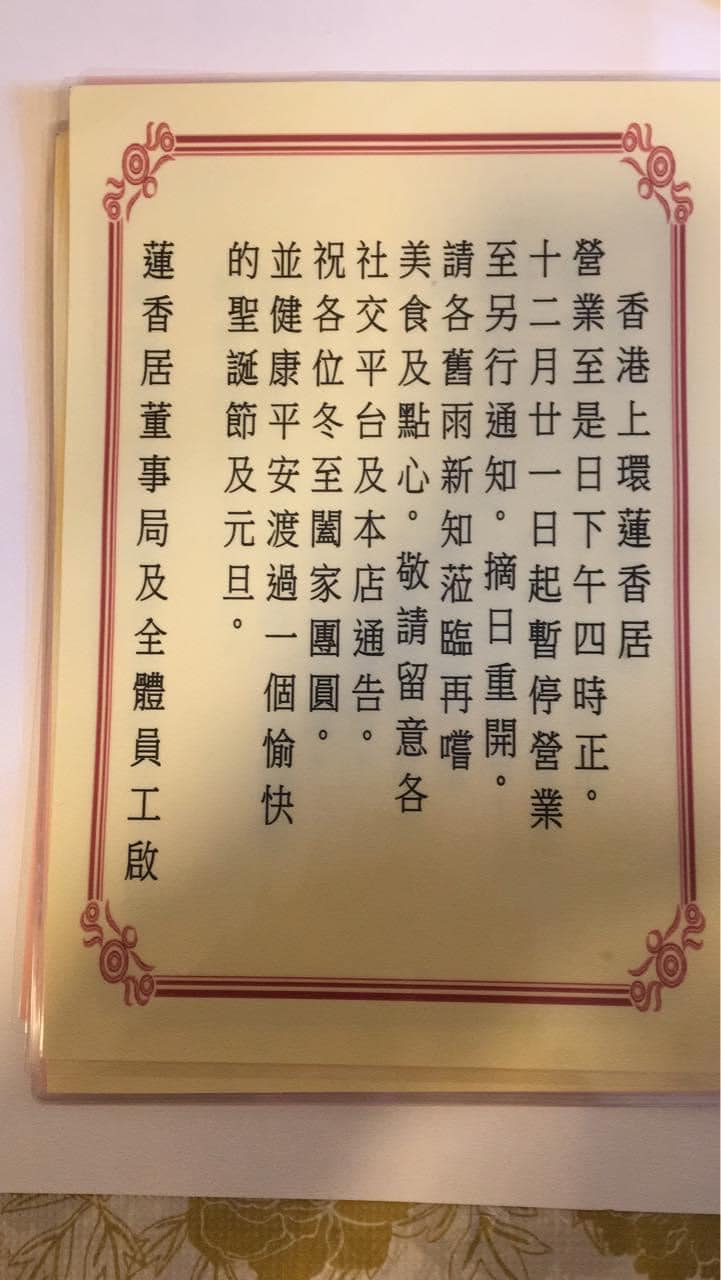 香港上環蓮香居
營業至是日下午四時正。
十二月廿一日起暫停營業
至另行通知。摘日重開。
請各舊雨新知蒞臨再嚐
美食及點心。敬請留意各
社交平台及本店通告。
祝各位冬至闔家團圓。
並健康平安渡過一個愉快
的聖誕節及元旦。
蓮香居董事局及全體員工啟